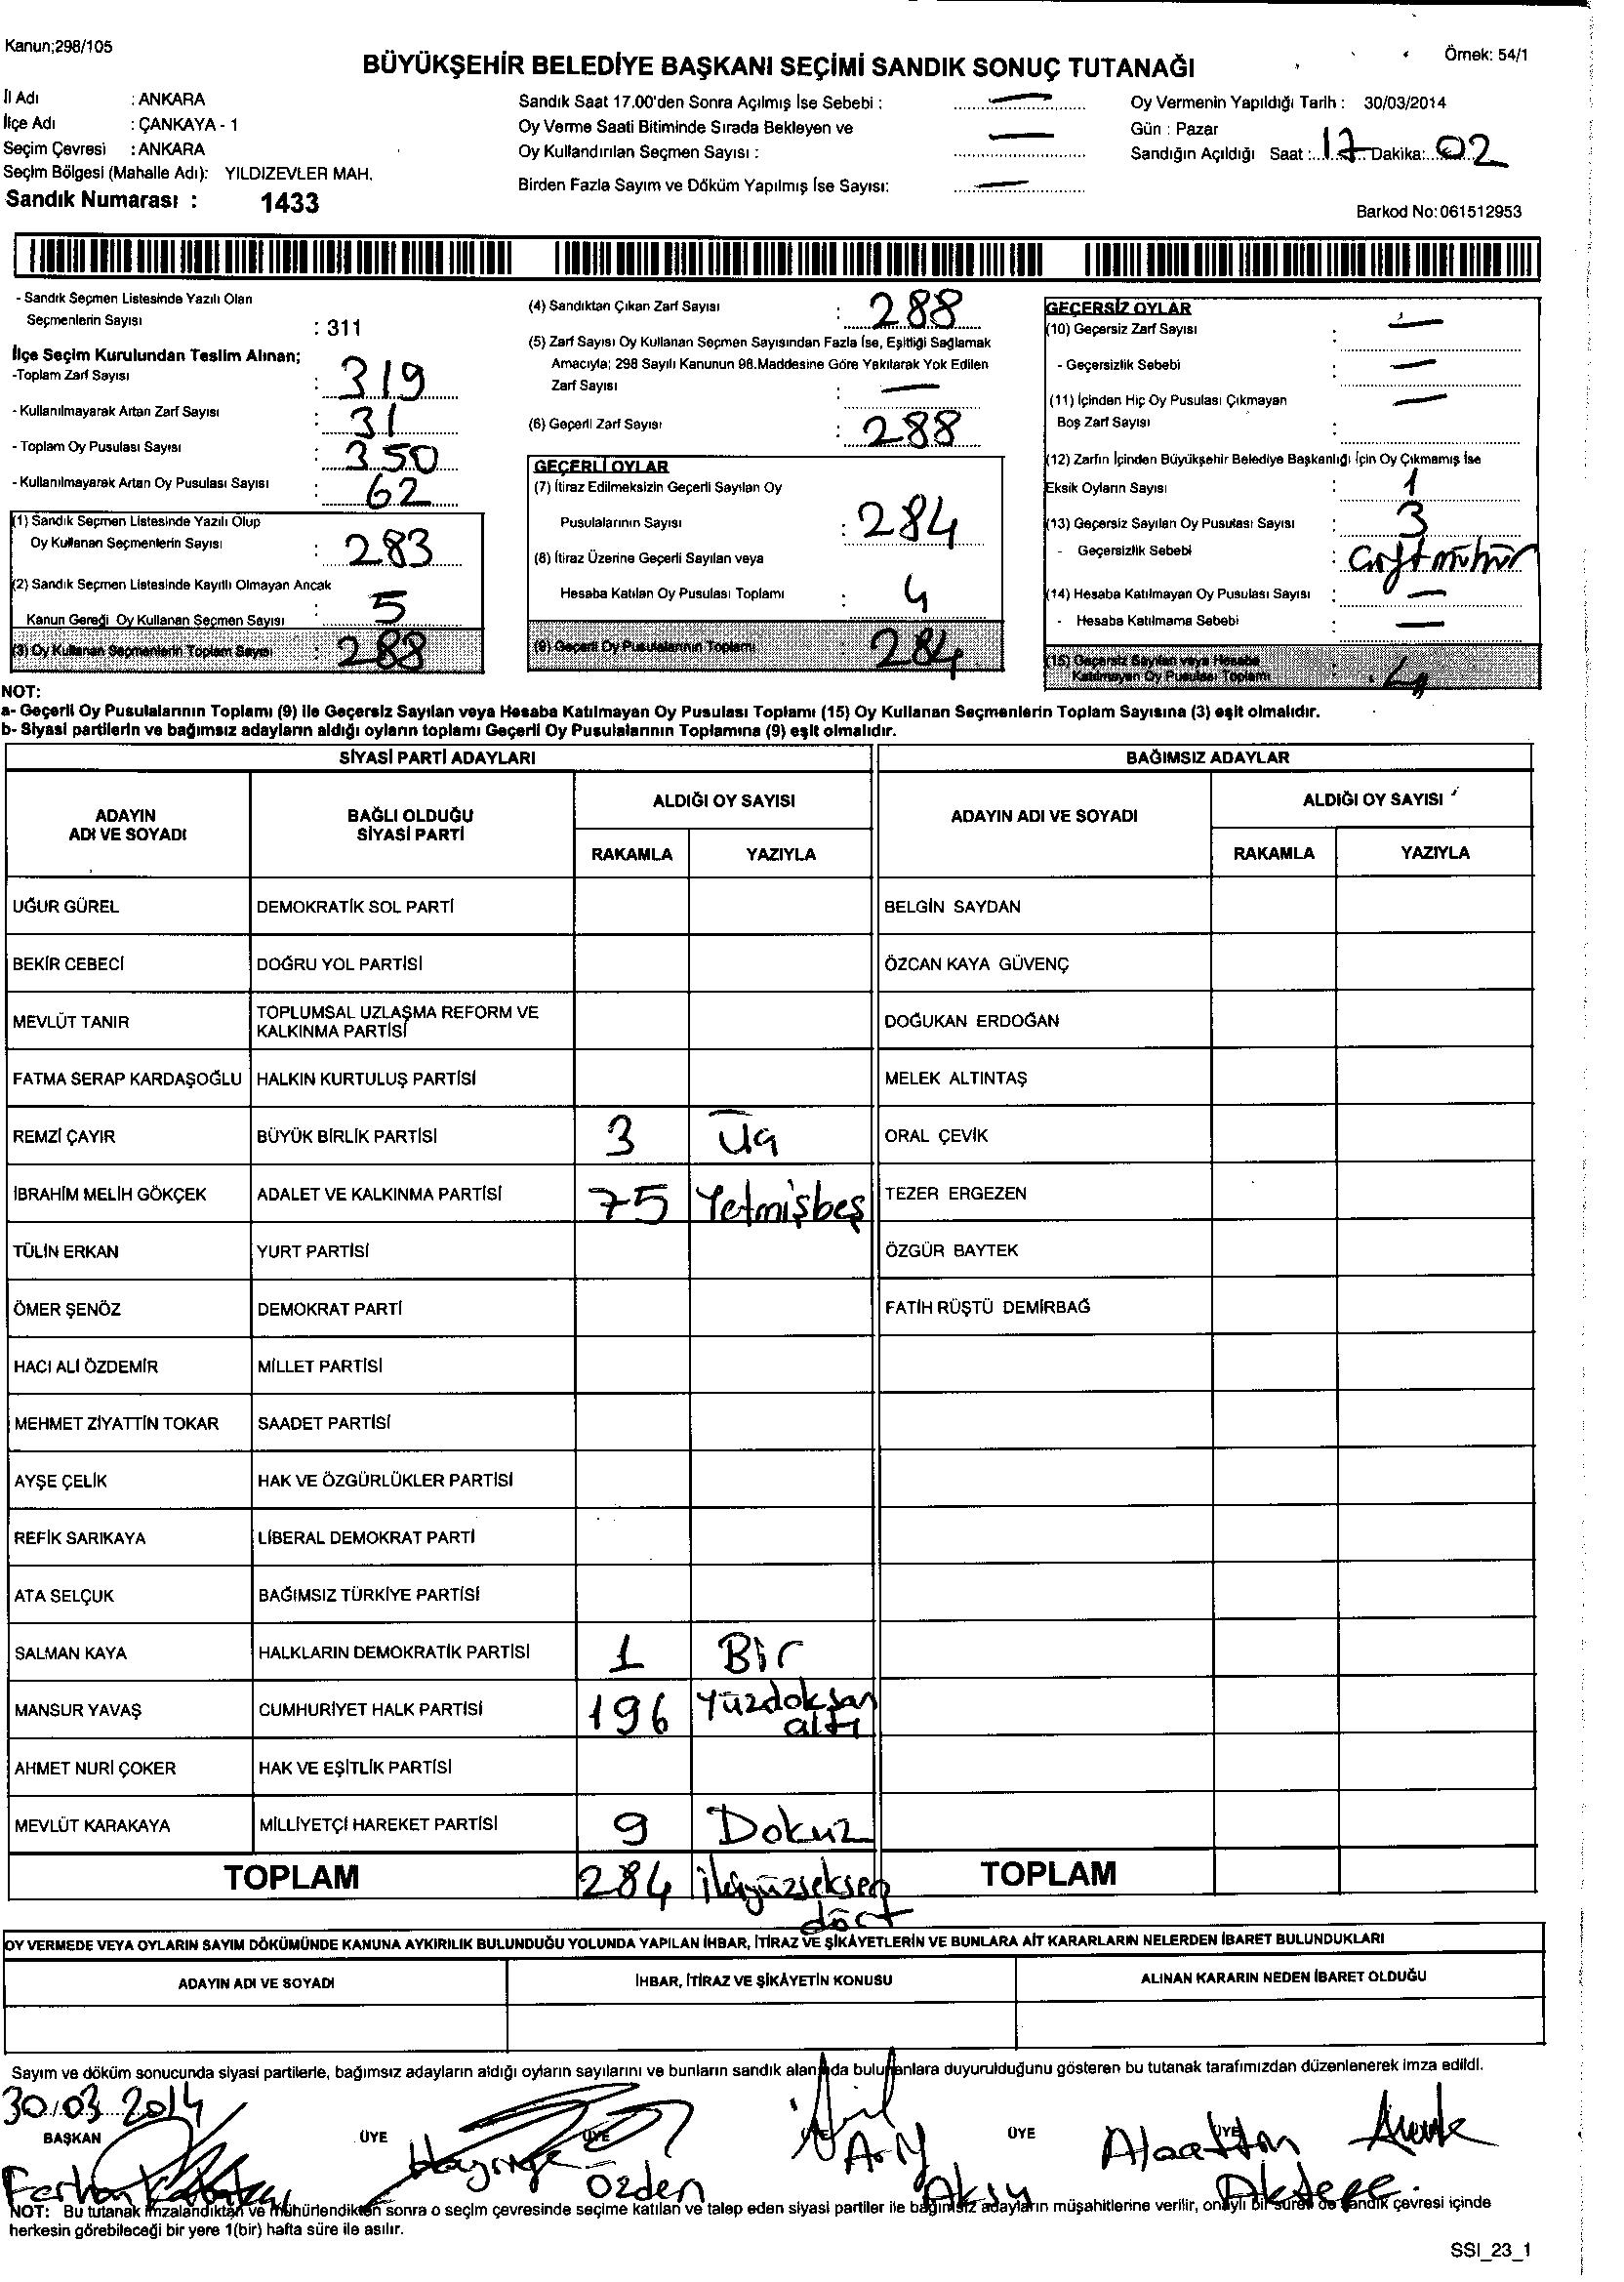 Kanun;298/105
BÜYÜKŞEHİR BELEDİYE BAŞKANI SEÇİMİ SANDIK SONUÇ TUTANAĞI
Örnek: 54/1
İl Adı : ANKARA
İlçe Adı : ÇANKAYA - 1
Seçim Çevresi : ANKARA
Seçim Bölgesi (Mahalle Adı): YILDIZEVLER MAH.
Sandık Numarası : 1433
Sandık Saat 17.00'den Sonra Açılmış İse Sebebi : —
Oy Verme Saati Bitiminde Sırada Bekleyen ve
Oy Kullandırılan Seçmen Sayısı : —
Birden Fazla Sayım ve Döküm Yapılmış İse Sayısı: —
Oy Vermenin Yapıldığı Tarih : 30/03/2014
Gün : Pazar
Sandığın Açıldığı Saat : 17 Dakika: 02
Barkod No:061512953
- Sandık Seçmen Listesinde Yazılı Olan
Seçmenlerin Sayısı : 311
İlçe Seçim Kurulundan Teslim Alınan;
-Toplam Zarf Sayısı : 319
- Kullanılmayarak Artan Zarf Sayısı : 31
- Toplam Oy Pusulası Sayısı : 350
- Kullanılmayarak Artan Oy Pusulası Sayısı : 62
(1) Sandık Seçmen Listesinde Yazılı Olup
Oy Kullanan Seçmenlerin Sayısı : 283
(2) Sandık Seçmen Listesinde Kayıtlı Olmayan Ancak
Kanun Gereği Oy Kullanan Seçmen Sayısı : 5
(3) Oy Kullanan Seçmenlerin Toplam Sayısı : 288
(4) Sandıktan Çıkan Zarf Sayısı : 288
(5) Zarf Sayısı Oy Kullanan Seçmen Sayısından Fazla İse, Eşitliği Sağlamak
Amacıyla; 298 Sayılı Kanunun 98.Maddesine Göre Yakılarak Yok Edilen
Zarf Sayısı : —
(6) Geçerli Zarf Sayısı : 288
GEÇERLİ OYLAR
(7) İtiraz Edilmeksizin Geçerli Sayılan Oy
Pusulalarının Sayısı : 284
(8) İtiraz Üzerine Geçerli Sayılan veya
Hesaba Katılan Oy Pusulası Toplamı : 4
(9) Geçerli Oy Pusulalarının Toplamı : 284
GEÇERSİZ OYLAR
(10) Geçersiz Zarf Sayısı : —
- Geçersizlik Sebebi : —
(11) İçinden Hiç Oy Pusulası Çıkmayan —
Boş Zarf Sayısı :
(12) Zarfın İçinden Büyükşehir Belediye Başkanlığı İçin Oy Çıkmamış İse
Eksik Oyların Sayısı : 1
(13) Geçersiz Sayılan Oy Pusulası Sayısı : 3
- Geçersizlik Sebebi : Çift mühür
(14) Hesaba Katılmayan Oy Pusulası Sayısı : —
- Hesaba Katılmama Sebebi : —
(15) Geçersiz Sayılan veya Hesaba
Katılmayan Oy Pusulası Toplamı : 4
NOT:
a- Geçerli Oy Pusulalarının Toplamı (9) ile Geçersiz Sayılan veya Hesaba Katılmayan Oy Pusulası Toplamı (15) Oy Kullanan Seçmenlerin Toplam Sayısına (3) eşit olmalıdır.
b- Siyasi partilerin ve bağımsız adayların aldığı oyların toplamı Geçerli Oy Pusulalarının Toplamına (9) eşit olmalıdır.
SİYASİ PARTİ ADAYLARI
BAĞIMSIZ ADAYLAR
ADAYIN
ADI VE SOYADI
BAĞLI OLDUĞU
SİYASİ PARTİ
ALDIĞI OY SAYISI
RAKAMLA YAZIYLA
ADAYIN ADI VE SOYADI
ALDIĞI OY SAYISI
RAKAMLA YAZIYLA
UĞUR GÜREL DEMOKRATİK SOL PARTİ BELGİN SAYDAN
BEKİR CEBECİ DOĞRU YOL PARTİSİ ÖZCAN KAYA GÜVENÇ
MEVLÜT TANIR TOPLUMSAL UZLAŞMA REFORM VE
KALKINMA PARTİSİ DOĞUKAN ERDOĞAN
FATMA SERAP KARDAŞOĞLU HALKIN KURTULUŞ PARTİSİ MELEK ALTINTAŞ
REMZİ ÇAYIR BÜYÜK BİRLİK PARTİSİ 3 Üç ORAL ÇEVİK
İBRAHİM MELİH GÖKÇEK ADALET VE KALKINMA PARTİSİ 75 Yetmişbeş TEZER ERGEZEN
TÜLİN ERKAN YURT PARTİSİ ÖZGÜR BAYTEK
ÖMER ŞENÖZ DEMOKRAT PARTİ FATİH RÜŞTÜ DEMİRBAĞ
HACI ALİ ÖZDEMİR MİLLET PARTİSİ
MEHMET ZİYATTİN TOKAR SAADET PARTİSİ
AYŞE ÇELİK HAK VE ÖZGÜRLÜKLER PARTİSİ
REFİK SARIKAYA LİBERAL DEMOKRAT PARTİ
ATA SELÇUK BAĞIMSIZ TÜRKİYE PARTİSİ
SALMAN KAYA HALKLARIN DEMOKRATİK PARTİSİ 1 Bir
MANSUR YAVAŞ CUMHURİYET HALK PARTİSİ 196 Yüzdoksan
altı
AHMET NURİ ÇOKER HAK VE EŞİTLİK PARTİSİ
MEVLÜT KARAKAYA MİLLİYETÇİ HAREKET PARTİSİ 9 Dokuz
TOPLAM 284 İkiyüzseksen
dört
TOPLAM
OY VERMEDE VEYA OYLARIN SAYIM DÖKÜMÜNDE KANUNA AYKIRILIK BULUNDUĞU YOLUNDA YAPILAN İHBAR, İTİRAZ VE ŞİKÂYETLERİN VE BUNLARA AİT KARARLARIN NELERDEN İBARET BULUNDUKLARI
ADAYIN ADI VE SOYADI İHBAR, İTİRAZ VE ŞİKÂYETİN KONUSU ALINAN KARARIN NEDEN İBARET OLDUĞU
Sayım ve döküm sonucunda siyasi partilerle, bağımsız adayların aldığı oyların sayılarını ve bunların sandık alanında bulunanlara duyurulduğunu gösteren bu tutanak tarafımızdan düzenlenerek imza edildi.
30/03/2014
BAŞKAN ÜYE ÜYE ÜYE ÜYE ÜYE
Özden
Aksu
Alaattin
Aktepe
NOT: Bu tutanak imzalandıktan ve mühürlendikten sonra o seçim çevresinde seçime katılan ve talep eden siyasi partiler ile bağımsız adayların müşahitlerine verilir, onaylı bir sureti de sandık çevresi içinde
herkesin görebileceği bir yere 1(bir) hafta süre ile asılır.
SSI_23_1